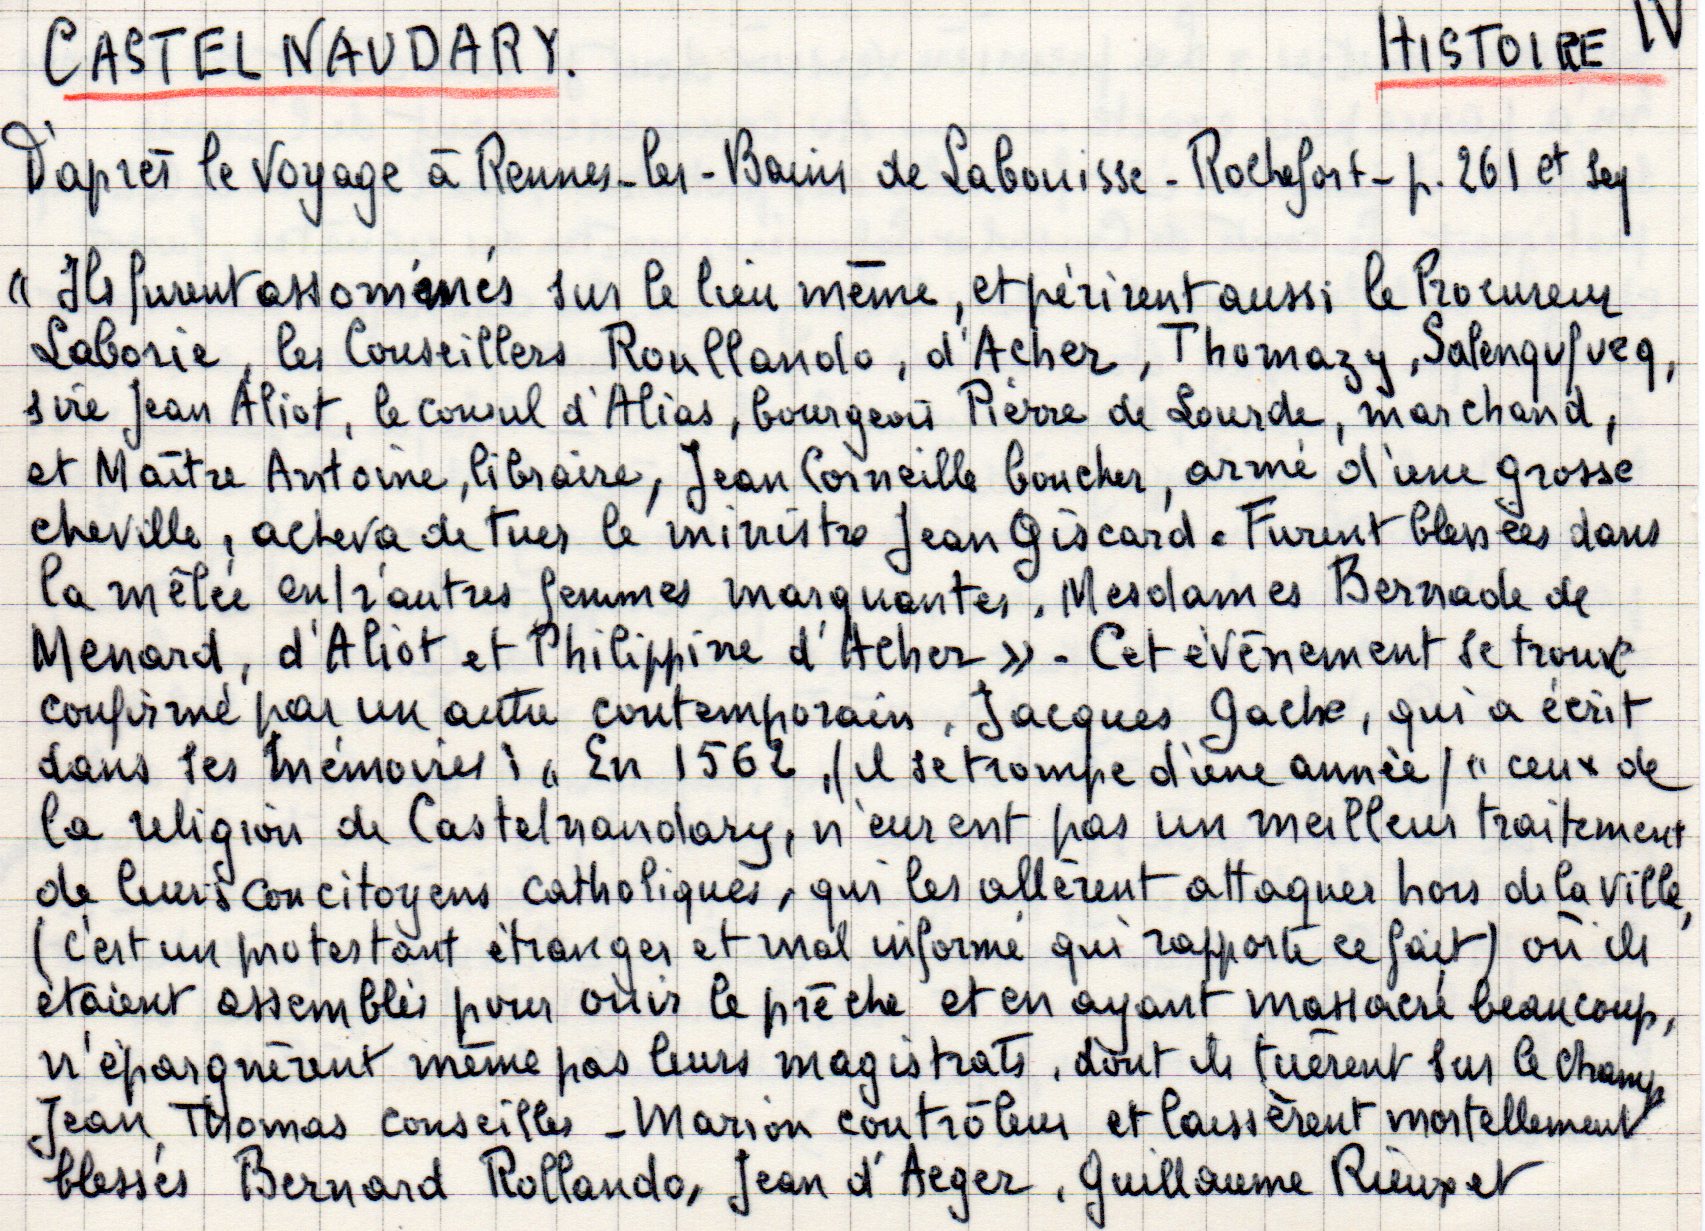 CASTELNAUDARY. HISTOIRE IV
D'après le Voyage à Rennes-les-Bains de Labouisse-Rochefort - p. 261 et seq
« Ils furent assommés sur le lieu même, et périrent aussi le Procureur
Laborie, les Conseillers Roullando, d'Acher, Thomazy,
sire Jean Aliot, le consul d'Alias, bourgeois Pierre de Lourde, marchand,
et Maître Antoine, libraire, Jean Corneille boucher, armé d'une grosse
cheville, acheva de tuer le ministre Jean Giscard. Furent blessées dans
la mêlée entr'autres femmes marquantes, Mesdames Bernade de
Menard, d'Aliot et Philippine d'Acher » - Cet évènement se trouve
confirmé par un autre contemporain, Jacques Gache, qui a écrit
dans ses mémoires : « En 1562, (il se trompe d'une année) « ceux de
la religion de Castelnaudary, n'eurent pas un meilleur traitement
de leurs concitoyens catholiques, qui les allèrent attaquer hors de la ville,
(c'est un protestant étranger et mal informé qui rapporte ce fait) où ils
étaient assemblés pour ouir le prêche et en ayant massacré beaucoup,
n'épargnèrent même pas leurs magistrats, dont ils tuèrent sur le champ
Jean Thomas conseiller - Marion contrôleur et laissèrent mortellement
blessés Bernard Rollando, Jean d'Aeger, Guillaume Rieux et